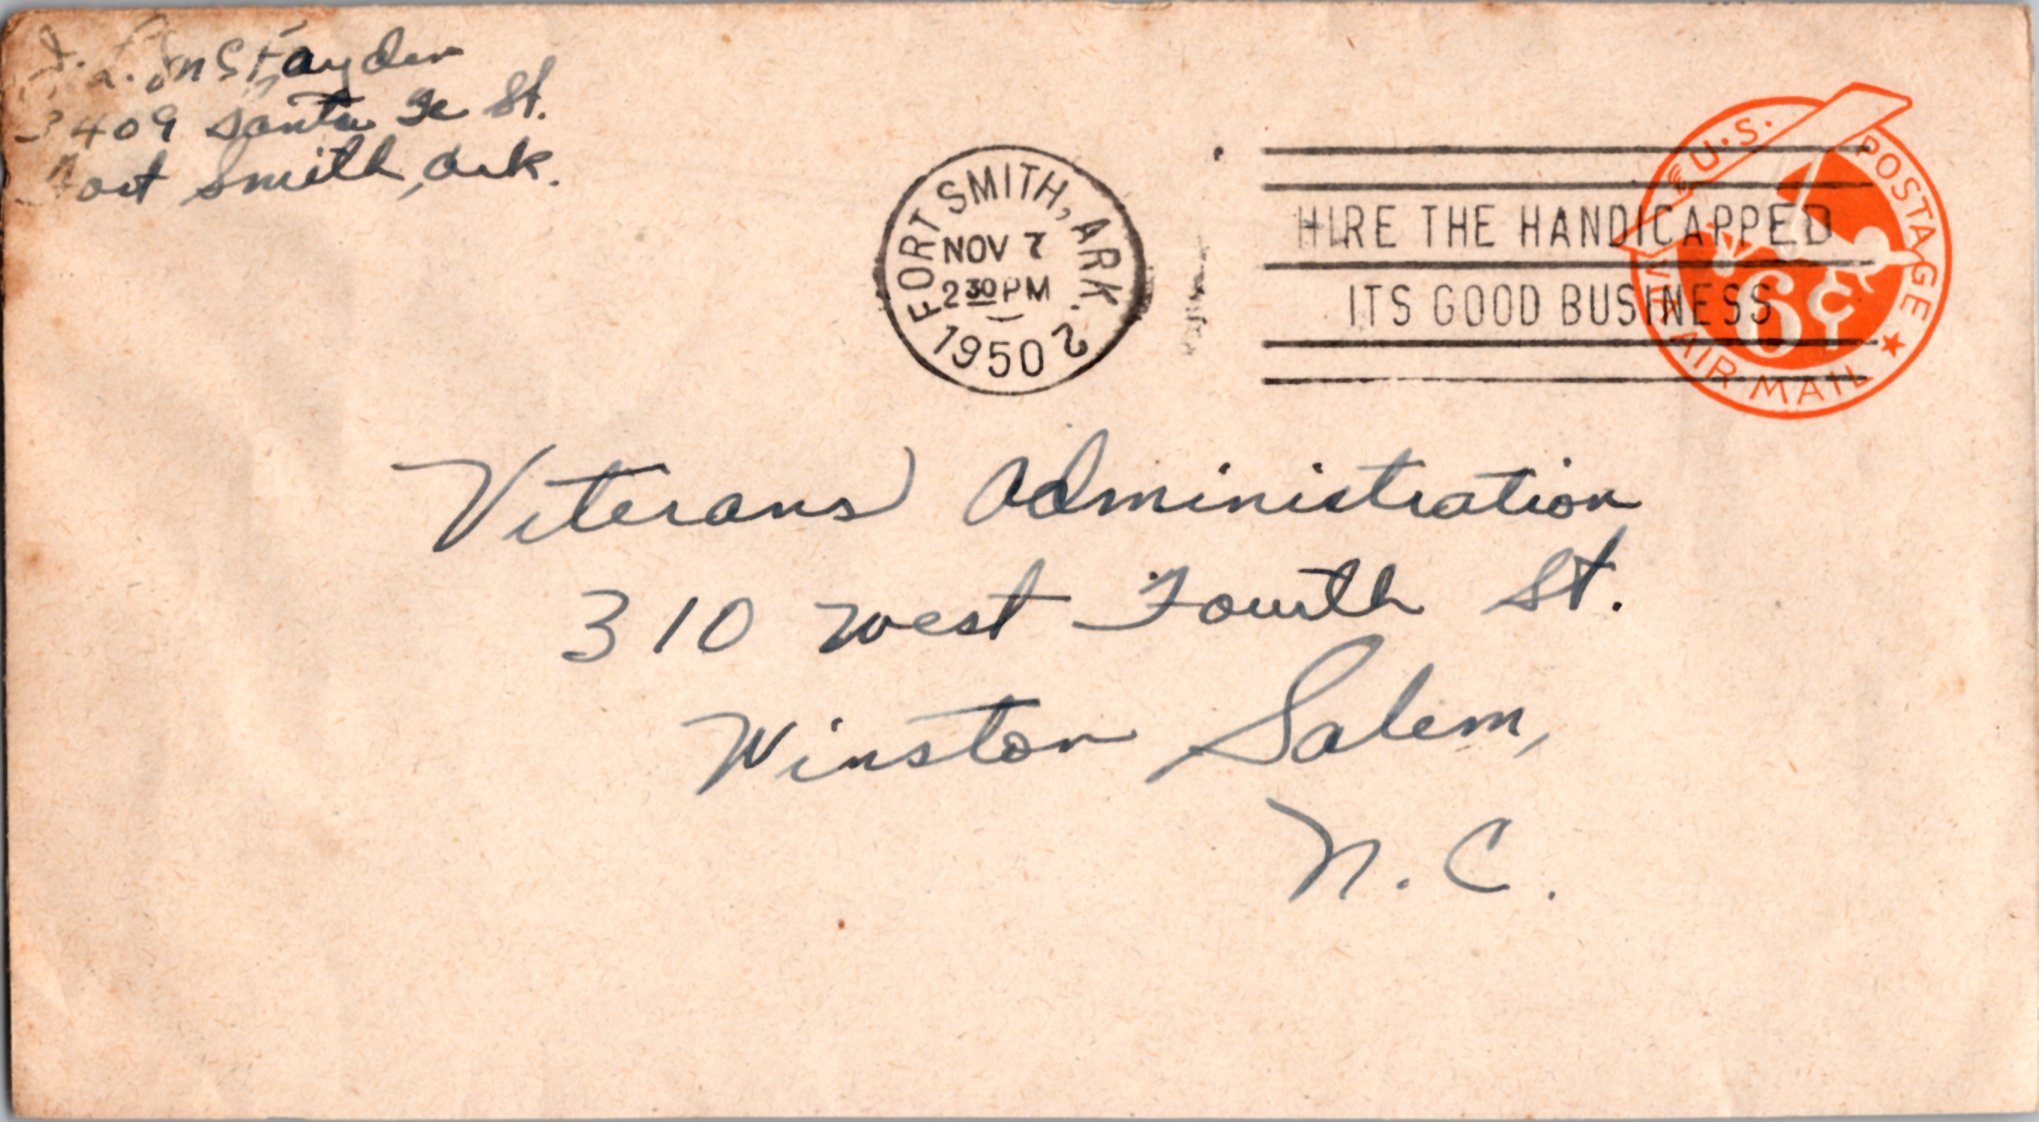 3409 Santa Fe St.
Fort Smith, Ark.
FORT SMITH, ARK. 2
NOV 7
2 30 PM
1950
HIRE THE HANDICAPPED
ITS GOOD BUSINESS
U.S. POSTAGE
VIA AIR MAIL
6¢
Veterans Administration
310 West Fourth St.
Winston Salem,
N.C.